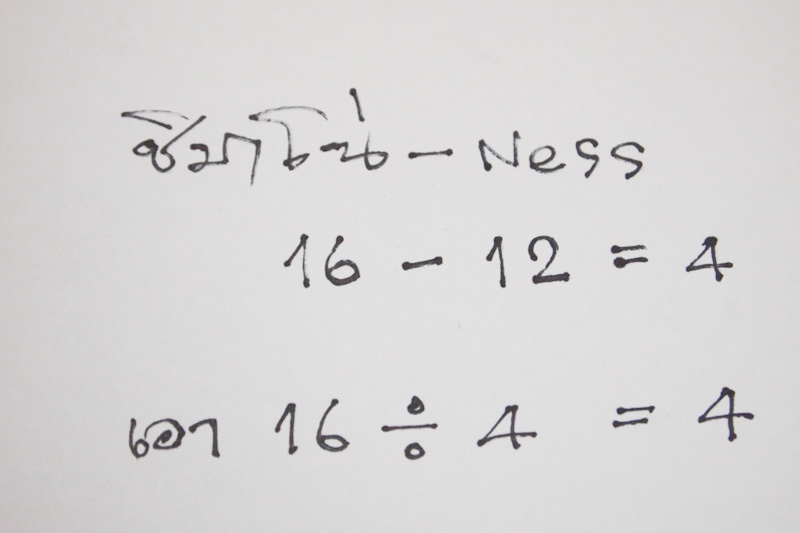 ชิมาโน่ - Ness
16 - 12 = 4
เอา 16 ÷ 4 = 4